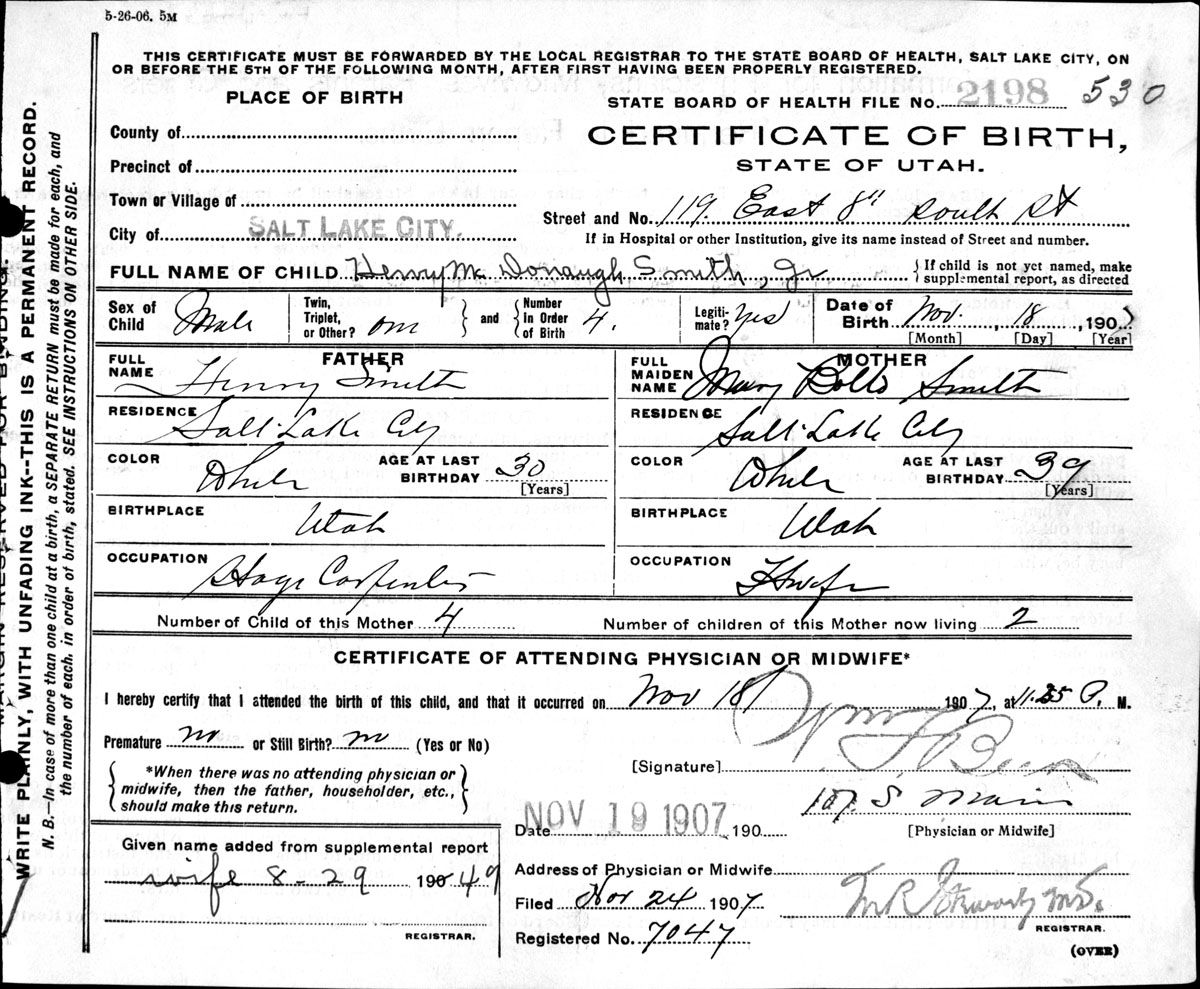 5-26-06. 5M
THIS CERTIFICATE MUST BE FORWARDED BY THE LOCAL REGISTRAR TO THE STATE BOARD OF HEALTH, SALT LAKE CITY, ON
OR BEFORE THE 5TH OF THE FOLLOWING MONTH, AFTER FIRST HAVING BEEN PROPERLY REGISTERED.
PLACE OF BIRTH
STATE BOARD OF HEALTH FILE No. 2198 530
County of
CERTIFICATE OF BIRTH,
Precinct of
STATE OF UTAH.
Town or Village of
Street and No. 119. East 8" South St
City of SALT LAKE CITY.
If in Hospital or other Institution, give its name instead of Street and number.
FULL NAME OF CHILD Henry Mc Donaugh Smith, Jr
{ If child is not yet named, make
supplemental report, as directed
Sex of Child Male
Twin, Triplet, or Other? one
and
Number in Order of Birth 4.
Legiti-mate? Yes
Date of Birth Nov. 18, 1907
[Month] [Day] [Year]
FATHER
FULL NAME Henry Smith
MOTHER
FULL MAIDEN NAME Mary Smith
RESIDENCE Salt Lake City
RESIDENCE Salt Lake City
COLOR White
AGE AT LAST BIRTHDAY 30
[Years]
COLOR White
AGE AT LAST BIRTHDAY 39
[Years]
BIRTHPLACE Utah
BIRTHPLACE Utah
OCCUPATION Stage Carpenter
OCCUPATION Hwife
Number of Child of this Mother 4
Number of children of this Mother now living 2
CERTIFICATE OF ATTENDING PHYSICIAN OR MIDWIFE*
I hereby certify that I attended the birth of this child, and that it occurred on Nov 18 1907, at 11.55 P. M.
Premature no or Still Birth? no (Yes or No)
{ *When there was no attending physician or
midwife, then the father, householder, etc.,
should make this return. }
[Signature]
107 S. Main
Date NOV 19 1907 190
[Physician or Midwife]
Given name added from supplemental report
wife 8-29 190 49
REGISTRAR.
Address of Physician or Midwife
Filed Nov 24 1907
Registered No. 7047
REGISTRAR.
(OVER)
MARGIN RESERVED FOR BINDING.
WRITE PLAINLY, WITH UNFADING INK--THIS IS A PERMANENT RECORD.
N. B.—In case of more than one child at a birth, a SEPARATE RETURN must be made for each, and
the number of each, in order of birth, stated. SEE INSTRUCTIONS ON OTHER SIDE.